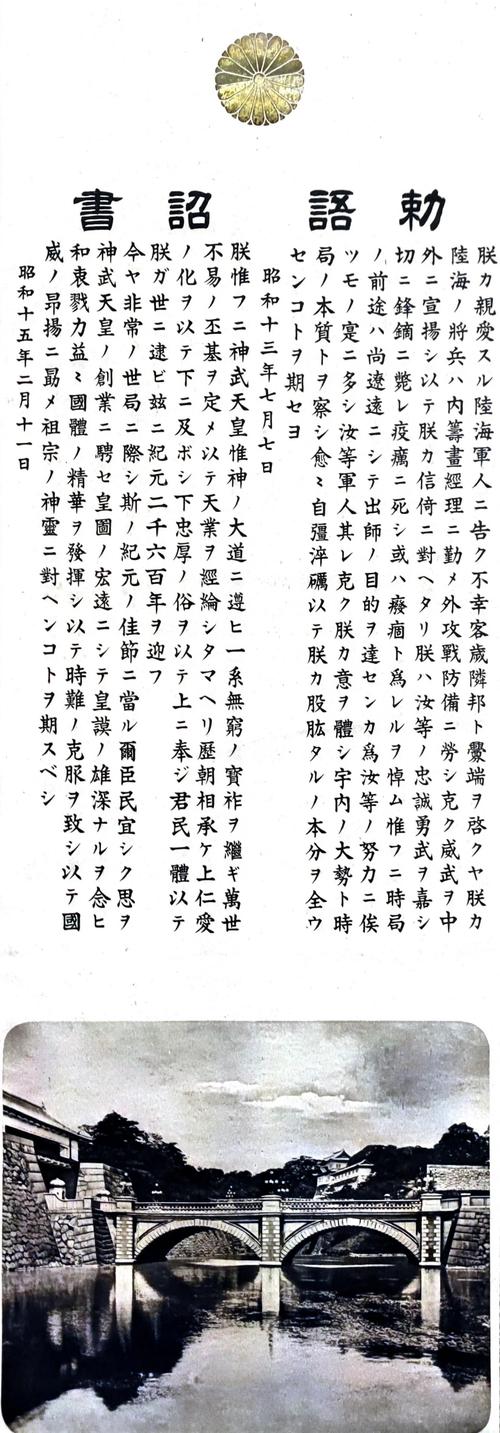 勅語
朕カ親愛スル陸海軍人ニ告ク不幸客歳隣邦ト釁端ヲ啓クヤ朕カ
陸海ノ將兵ハ内籌畫經理ニ勤メ外攻戰防備ニ勞シ克ク威武ヲ中
外ニ宣揚シ以テ朕カ信倚ニ對ヘタリ朕ハ汝等ノ忠誠勇武ヲ嘉シ
切ニ鋒鏑ニ斃レ疫癘ニ死シ或ハ癈痼ト爲レルヲ悼ム惟フニ時局
ノ前途ハ尚遼遠ニシテ出師ノ目的ヲ達センカ爲汝等ノ努力ニ俟
ツモノ寔ニ多シ汝等軍人其レ克ク朕カ意ヲ體シ宇内ノ大勢ト時
局ノ本質トヲ察シ愈〻自彊淬礪以テ朕カ股肱タルノ本分ヲ全ウ
センコトヲ期セヨ
昭和十三年七月七日
詔書
朕惟フニ神武天皇惟神ノ大道ニ遵ヒ一系無窮ノ寶祚ヲ繼ギ萬世
不易ノ丕基ヲ定メ以テ天業ヲ經綸シタマヘリ歷朝相承ケ上仁愛
ノ化ヲ以テ下ニ及ボシ下忠厚ノ俗ヲ以テ上ニ奉ジ君民一體以テ
朕ガ世ニ逮ビ玆ニ紀元二千六百年ヲ迎フ
今ヤ非常ノ世局ニ際シ斯ノ紀元ノ佳節ニ當ル爾臣民宜シク思ヲ
神武天皇ノ創業ニ騁セ皇圖ノ宏遠ニシテ皇謨ノ雄深ナルヲ念ヒ
和衷戮力益〻國體ノ精華ヲ發揮シ以テ時難ノ克服ヲ致シ以テ國
威ノ昂揚ニ勗メ祖宗ノ神靈ニ對ヘンコトヲ期スベシ
昭和十五年二月十一日